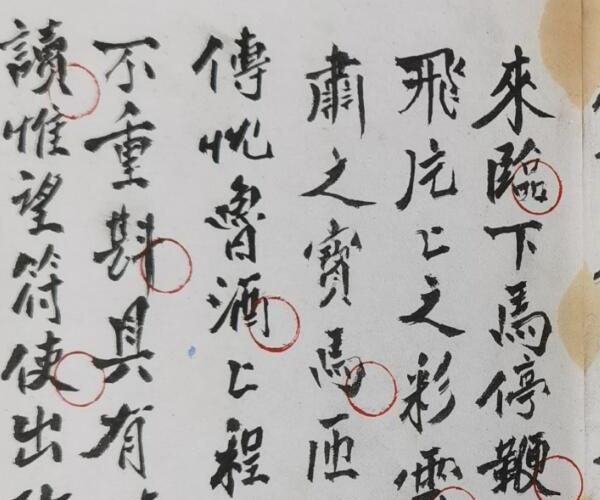 來臨下馬停鞭
飛片上之彩雲
肅之寶馬匝
傳忱魯酒上程
不重斟具有
讀惟望符使出